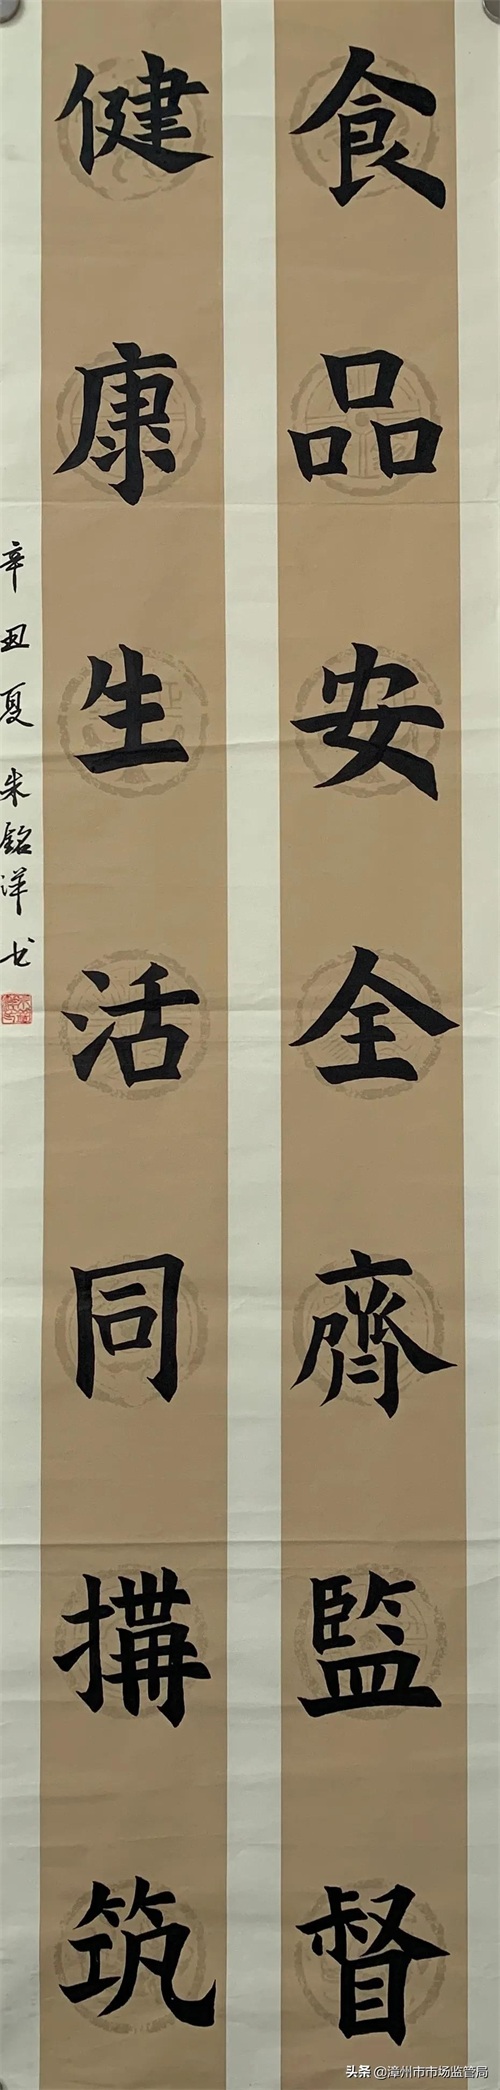 食品安全齊監督
健康生活同搆筑
辛丑夏 朱銘洋书
头条 @漳州市市场监管局